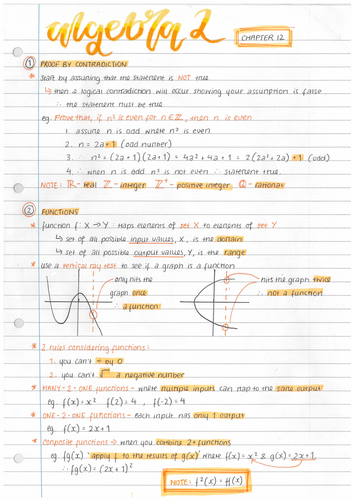 algebra 2
CHAPTER 12
① PROOF BY CONTRADICTION
* start by assuming that the statement is NOT true
↳ then a logical contradiction will occur showing your assumption is false
∴ the statement must be true
eg. Prove that, if n² is even for n∈ℤ, then n is even
1. assume n is odd where n² is even
2. n = 2a+1 (odd number)
3. ∴ n² = (2a+1)(2a+1) = 4a²+4a+1 = 2(2a²+2a)+1 (odd)
4. ∴ when n is odd n² is not even ∴ statement true.
NOTE: ℝ - real ℤ - integer ℤ⁺ - positive integer ℚ - rational
② FUNCTIONS
* function f: X → Y : Maps elements of set X to elements of set Y
↳ set of all possible input values, X, is the domain
↳ set of all possible output values, Y, is the range
* use a vertical ray test to see if a graph is a function
only hits the
graph once
∴ a function
hits the graph twice
∴ not a function
* 2 rules considering functions:
1. you can't ÷ by 0
2. you can't √ a negative number
* MANY-2-ONE functions - where multiple inputs can map to the same output
eg. f(x) = x² f(2) = 4 , f(-2) = 4
* ONE-2-ONE functions - each input has only 1 output
eg. f(x) = 2x+1
* composite functions → when you combine 2+ functions
eg. fg(x) 'apply f to the results of g(x)' where f(x) = x² & g(x) = 2x+1,
∴ fg(x) = (2x+1)²
NOTE: f²(x) = ff(x)